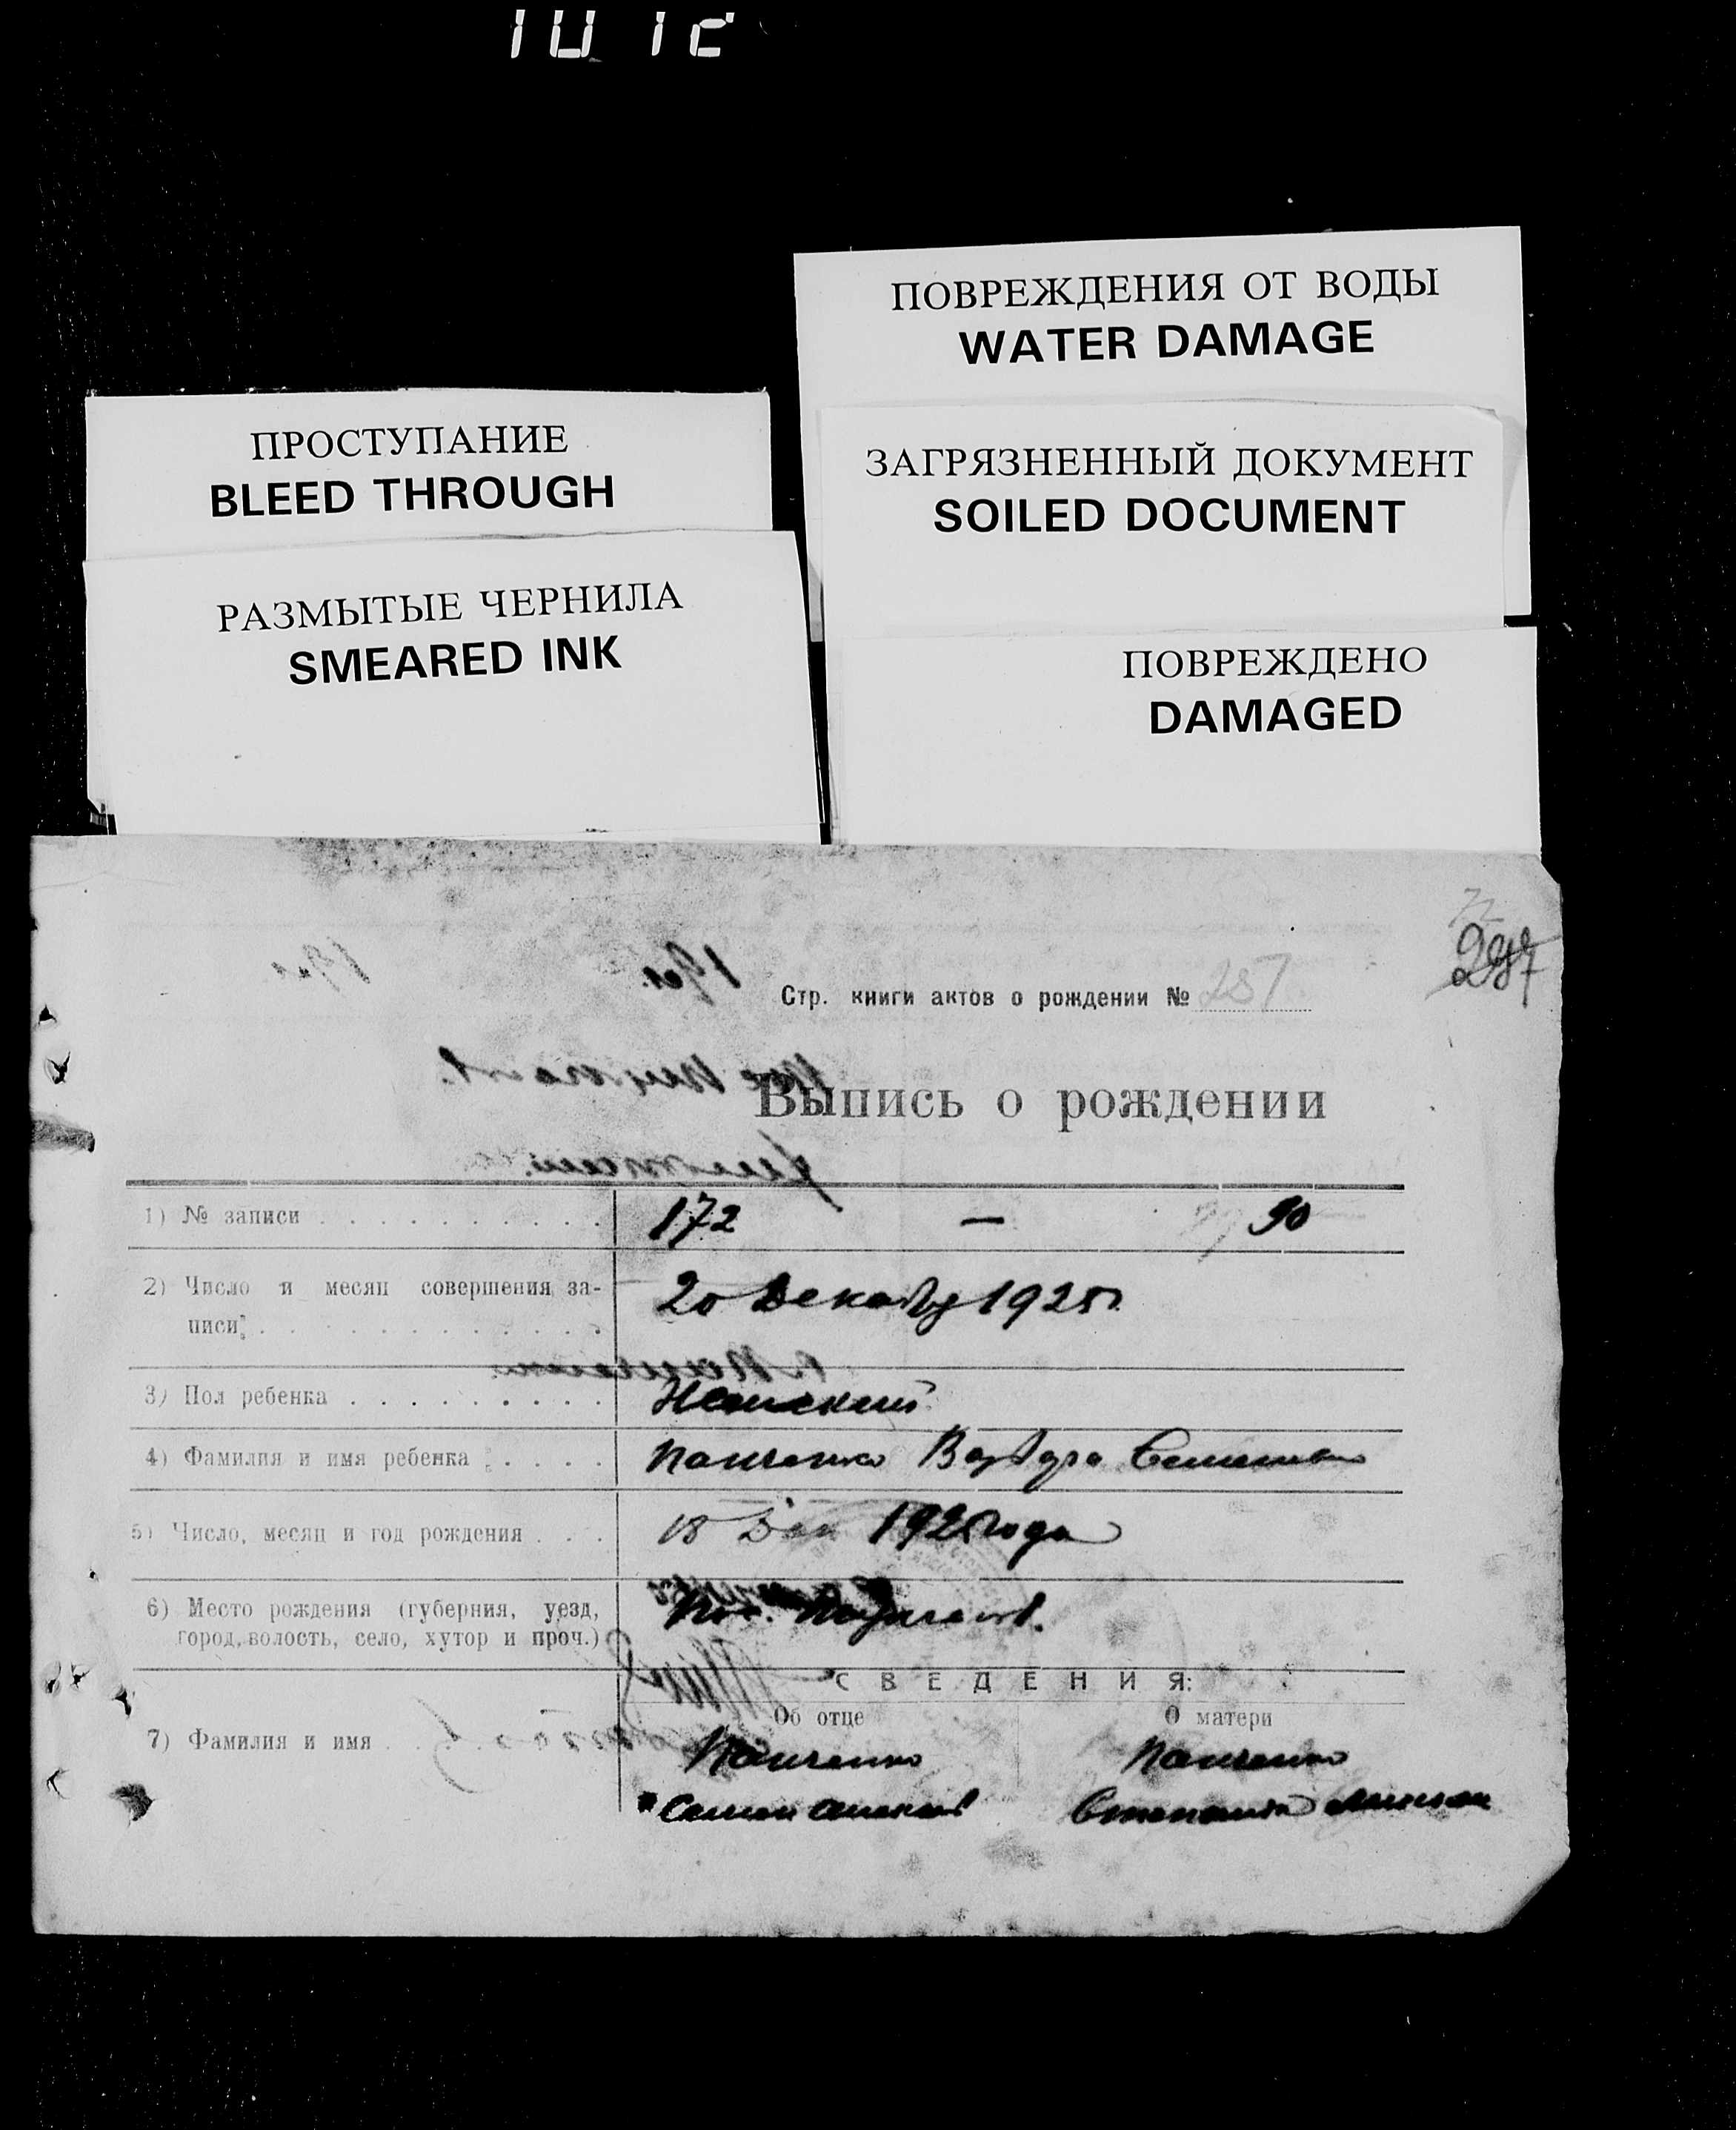 ПОВРЕЖДЕНИЯ ОТ ВОДЫ
WATER DAMAGE
ПРОСТУПАНИЕ
BLEED THROUGH
ЗАГРЯЗНЕННЫЙ ДОКУМЕНТ
SOILED DOCUMENT
РАЗМЫТЫЕ ЧЕРНИЛА
SMEARED INK
ПОВРЕЖДЕНО
DAMAGED
Стр. книги актов о рождении № 257
Выпись о рождении
1) № записи 172 — 90
2) Число и месяц совершения за-
писи: 20 Декабря 1925 г.
3) Пол ребенка Женский
4) Фамилия и имя ребенка Панченко Варвара Семеновна
5) Число, месяц и год рождения 18 Дек 1925 года
6) Место рождения (губерния, уезд,
город, волость, село, хутор и проч.) Пос.
СВЕДЕНИЯ:
Об отце О матери
7) Фамилия и имя Панченко Панченко
Семен Степанида